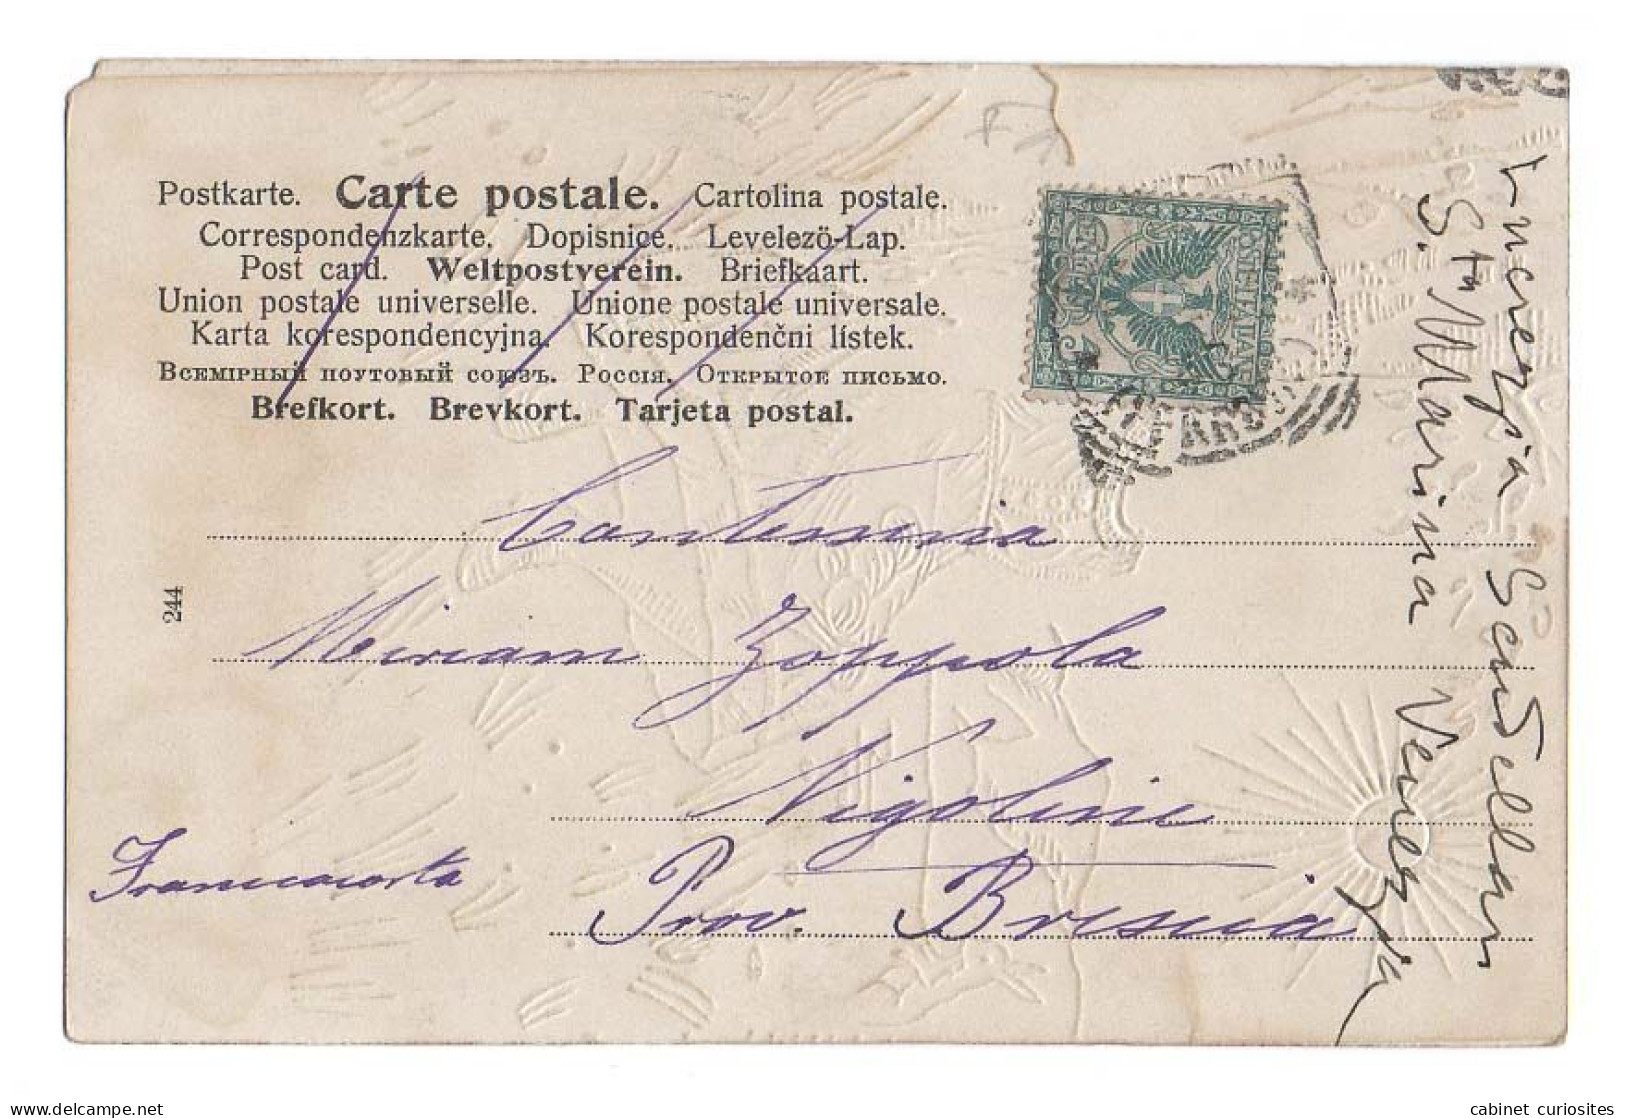 Postkarte. Carte postale. Cartolina postale.
Correspondenzkarte. Dopisnice. Levelezö-Lap.
Post card. Weltpostverein. Briefkaart.
Union postale universelle. Unione postale universale.
Karta korespondencyjna. Korespondenčni lístek.
Всемірный почтовый союзъ. Россія. Открытое письмо.
Brefkort. Brevkort. Tarjeta postal.
244
POSTE ITALIANE
CENTESIMI
5
Contessina
Miriam Zoppola
Nigoline
Franciacorta
Prov. Brescia
Lucrezia
S. Sta Marina Venezia
cabinet curiosites